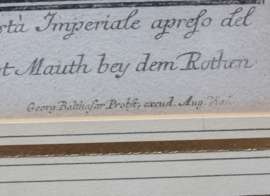 rtà Imperiale apreſo del
t Mauth bey dem Rothen
Georg Balthaſar Probſt, excud. Aug. Vind.